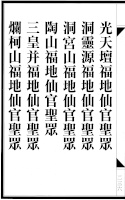 光天壇福地仙官聖眾
洞靈源福地仙官聖眾
洞宮山福地仙官聖眾
陶山福地仙官聖眾
三皇井福地仙官聖眾
爛柯山福地仙官聖眾